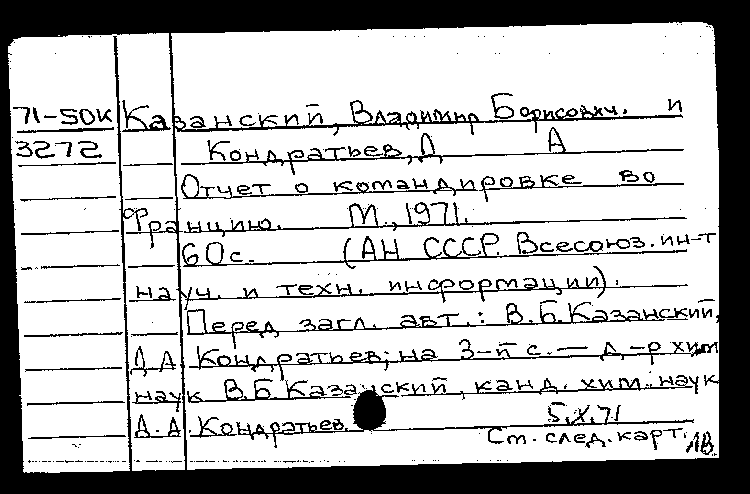 71-50к Казанский, Владимир Борисович. и
3272 Кондратьев, Д. А
Отчет о командировке во
Францию. М., 1971.
60с. (АН СССР. Всесоюз. ин-т
науч. и техн. информации).
Перед загл. авт.: В.Б.Казанский,
Д.А. Кондратьев; на 3-й с. — д-р хим
наук В.Б Казанский, канд. хим. наук
Д.А. Кондратьев.
5.X.71
Ст. след. карт. ЛВ